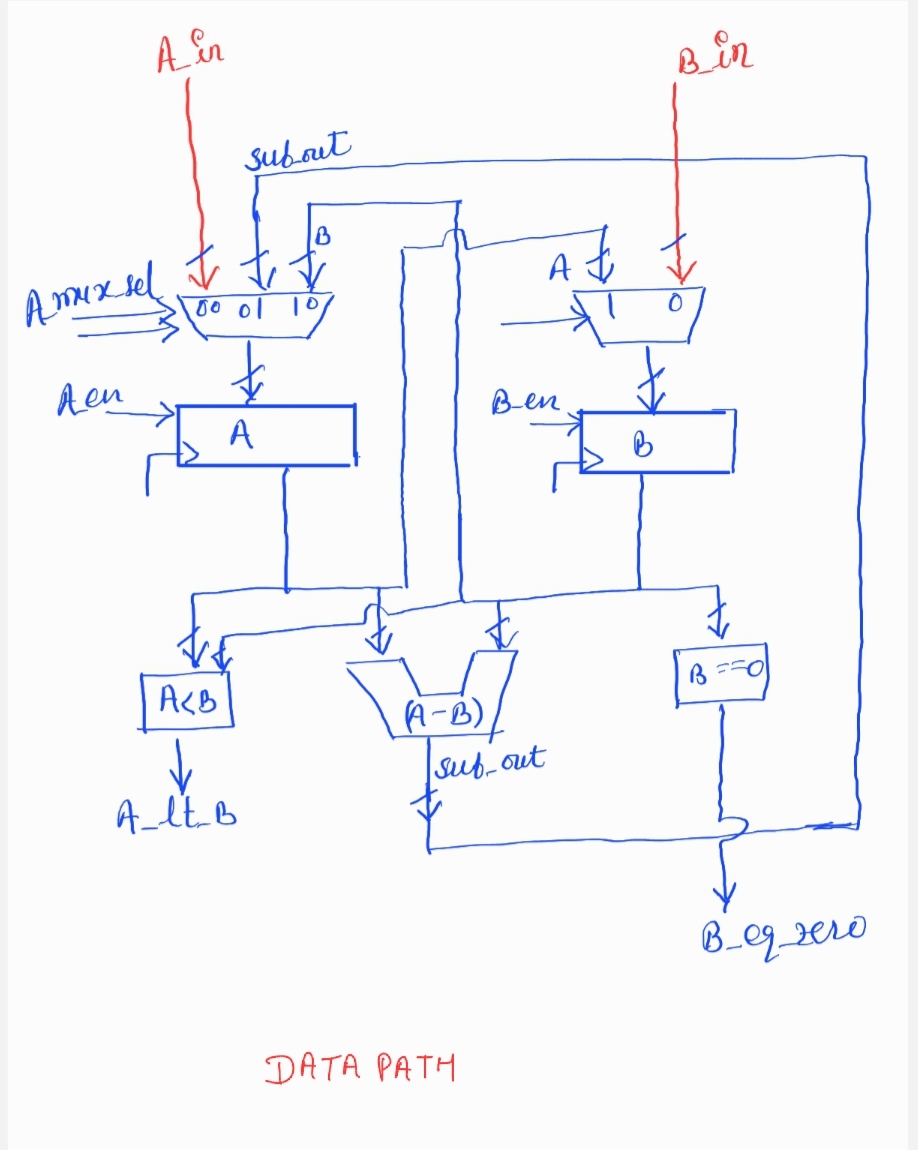 A_in
B_in
sub_out
B
A
A mux_sel
00 01 10
1 0
A_en
B_en
A
B
A<B
(A-B)
B==0
sub_out
A_lt_B
B_eq_zero
DATA PATH